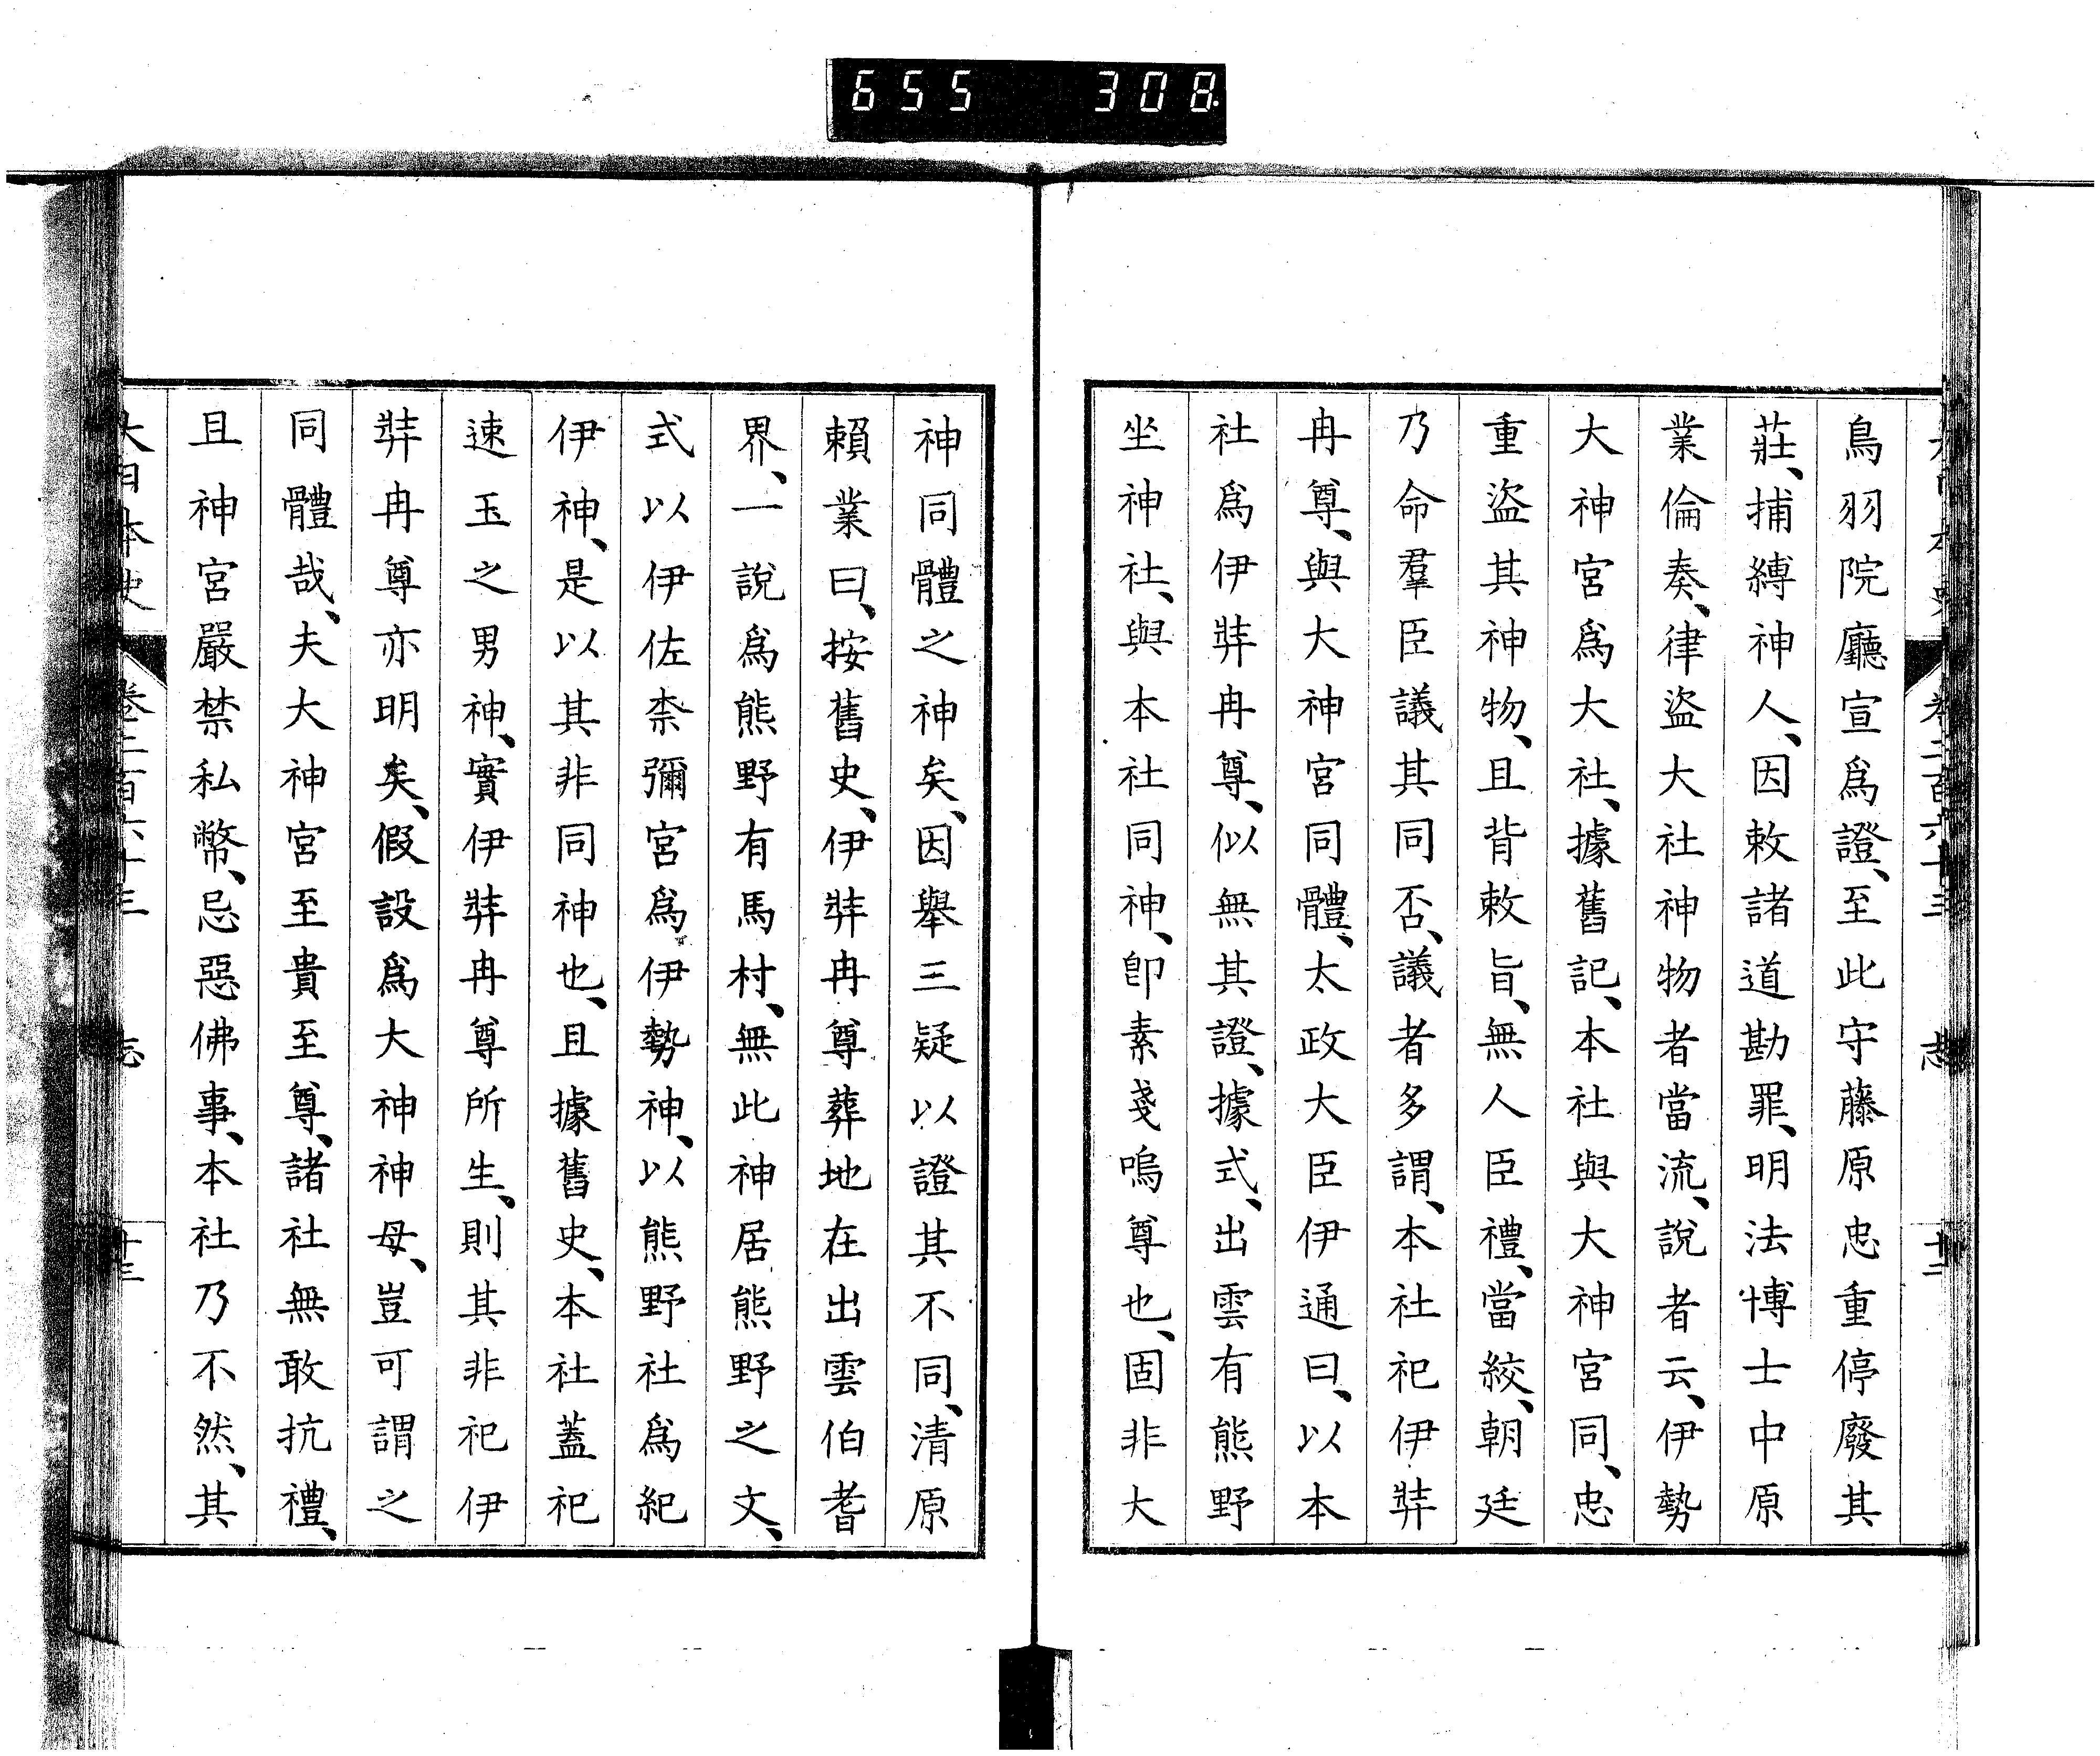 655 308
大日本史 卷二百六十三 志 十二
鳥羽院廳宣爲證、至此守藤原忠重停廢其
莊、捕縛神人、因敕諸道勘罪、明法博士中原
業倫奏、律盜大社神物者當流、說者云、伊勢
大神宮爲大社、據舊記、本社與大神宮同、忠
重盜其神物、且背敕旨、無人臣禮、當絞、朝廷
乃命羣臣議其同否、議者多謂、本社祀伊弉
冉尊、與大神宮同體、太政大臣伊通曰、以本
社爲伊弉冉尊、似無其證、據式、出雲有熊野
坐神社、與本社同神、卽素戔嗚尊也、固非大
神同體之神矣、因舉三疑以證其不同、清原
賴業曰、按舊史、伊弉冉尊葬地在出雲伯耆
界、一說爲熊野有馬村、無此神居熊野之文、
式以伊佐柰彌宮爲伊勢神、以熊野社爲紀
伊神、是以其非同神也、且據舊史、本社蓋祀
速玉之男神、實伊弉冉尊所生、則其非祀伊
弉冉尊亦明矣、假設爲大神神母、豈可謂之
同體哉、夫大神宮至貴至尊、諸社無敢抗禮、
且神宮嚴禁私幣、忌惡佛事、本社乃不然、其
大日本史 卷二百六十三 志 十三